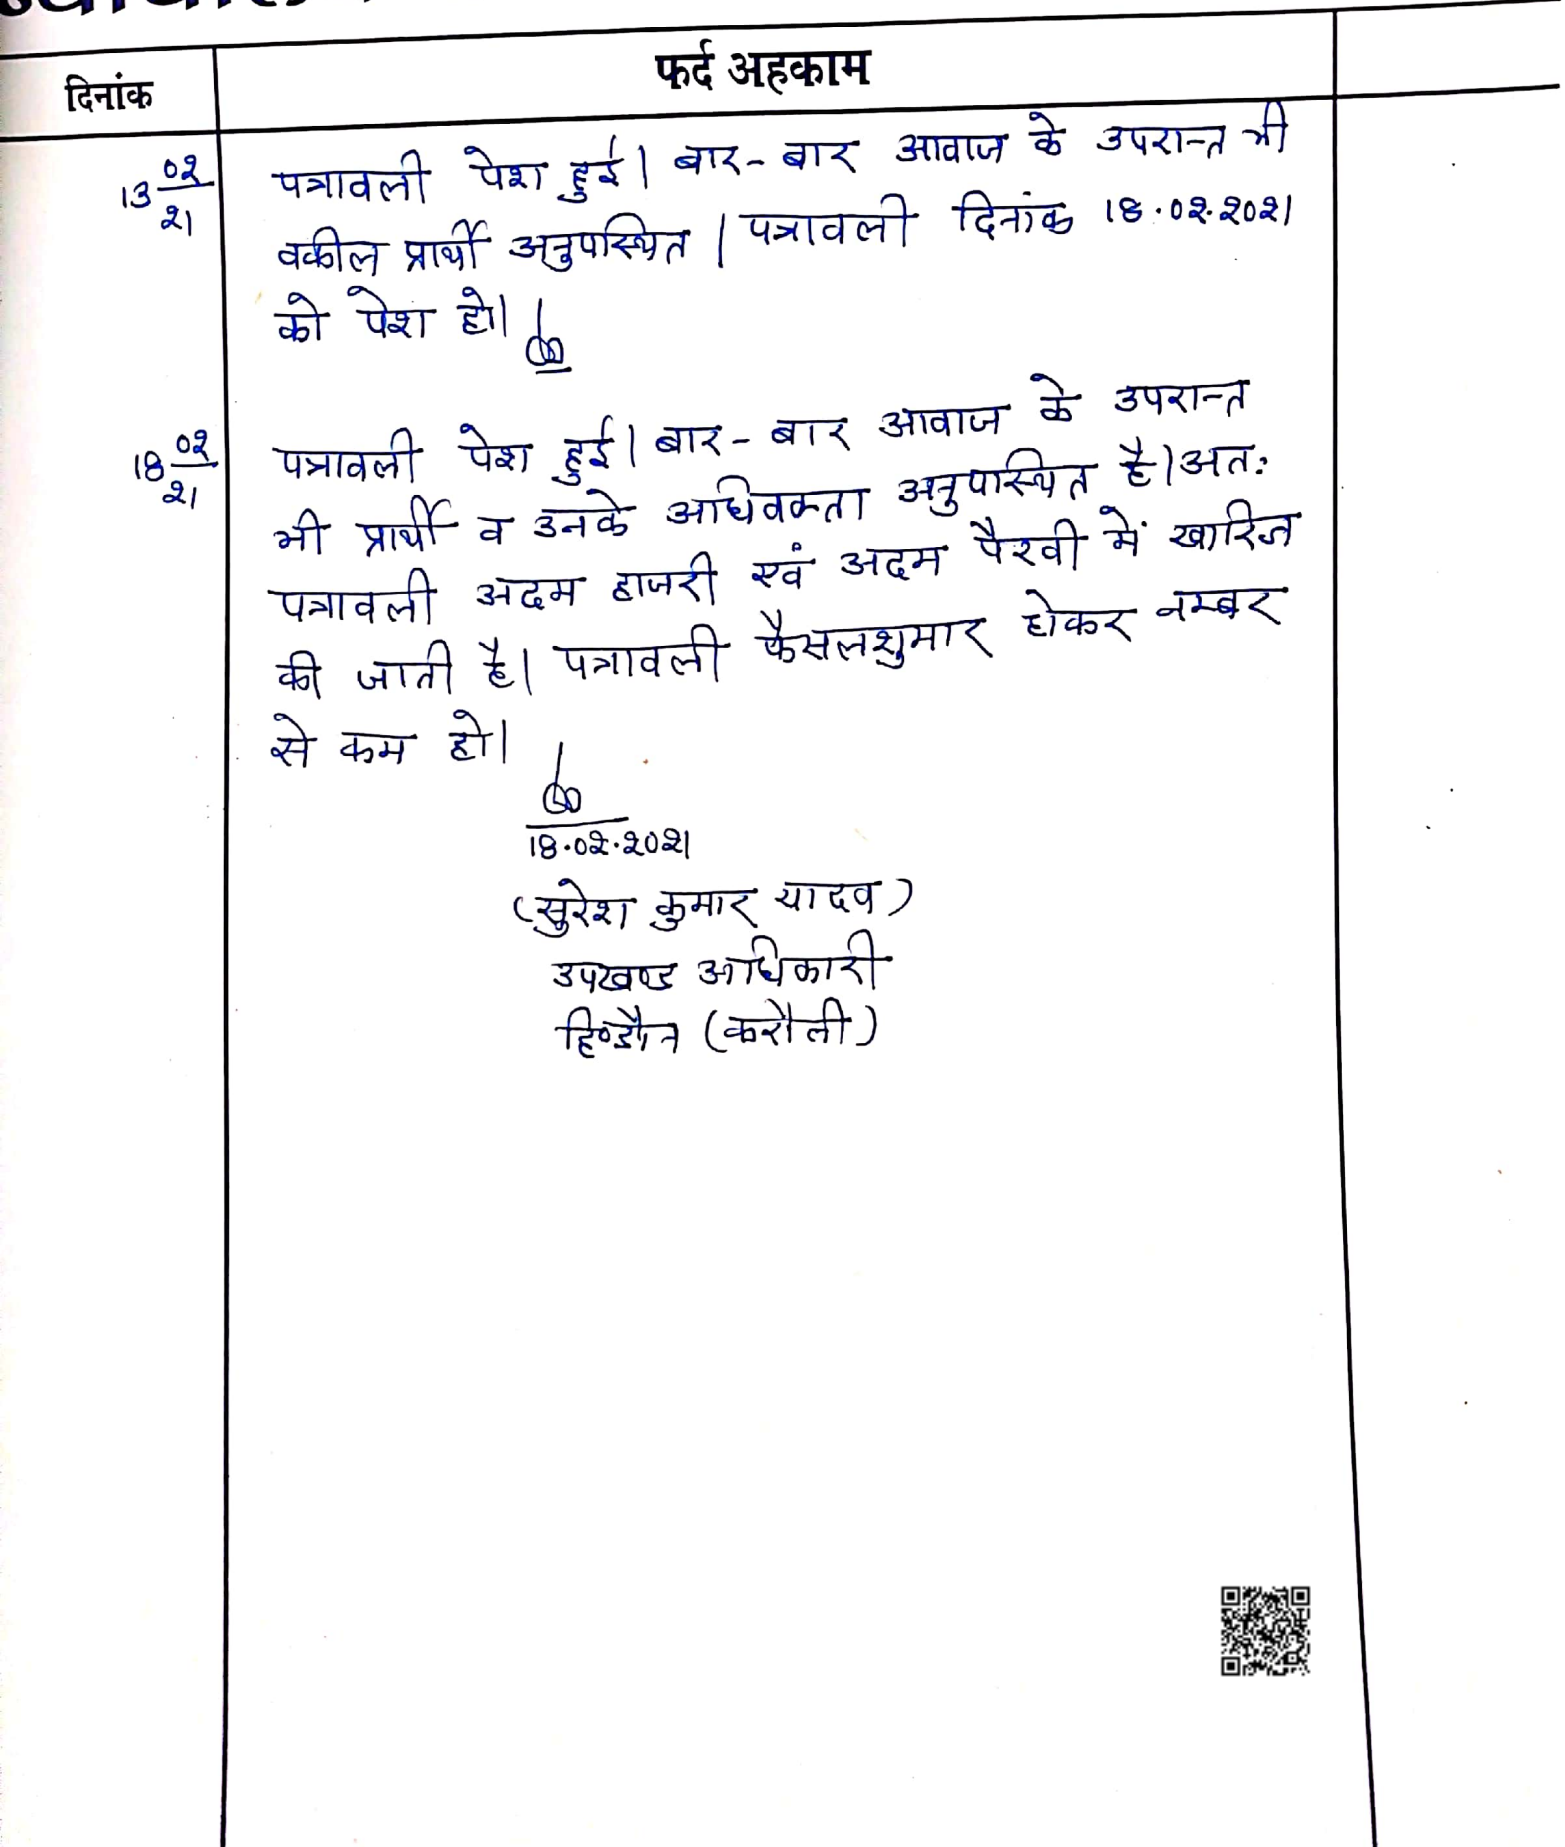 दिनांक
फर्द अहकाम
13 02/21
पत्रावली पेश हुई। बार-बार आवाज के उपरान्त भी
वकील प्रार्थी अनुपस्थित। पत्रावली दिनांक 18.02.2021
को पेश हो।
18 02/21
पत्रावली पेश हुई। बार-बार आवाज के उपरान्त
भी प्रार्थी व उनके अधिवक्ता अनुपस्थित है। अतः
पत्रावली अदम हाजरी एवं अदम पैरवी में खारिज
की जाती है। पत्रावली फैसलशुमार होकर नम्बर
से कम हो।
18.02.2021
(सुरेश कुमार यादव)
उपखण्ड अधिकारी
हिण्डौन (करौली)